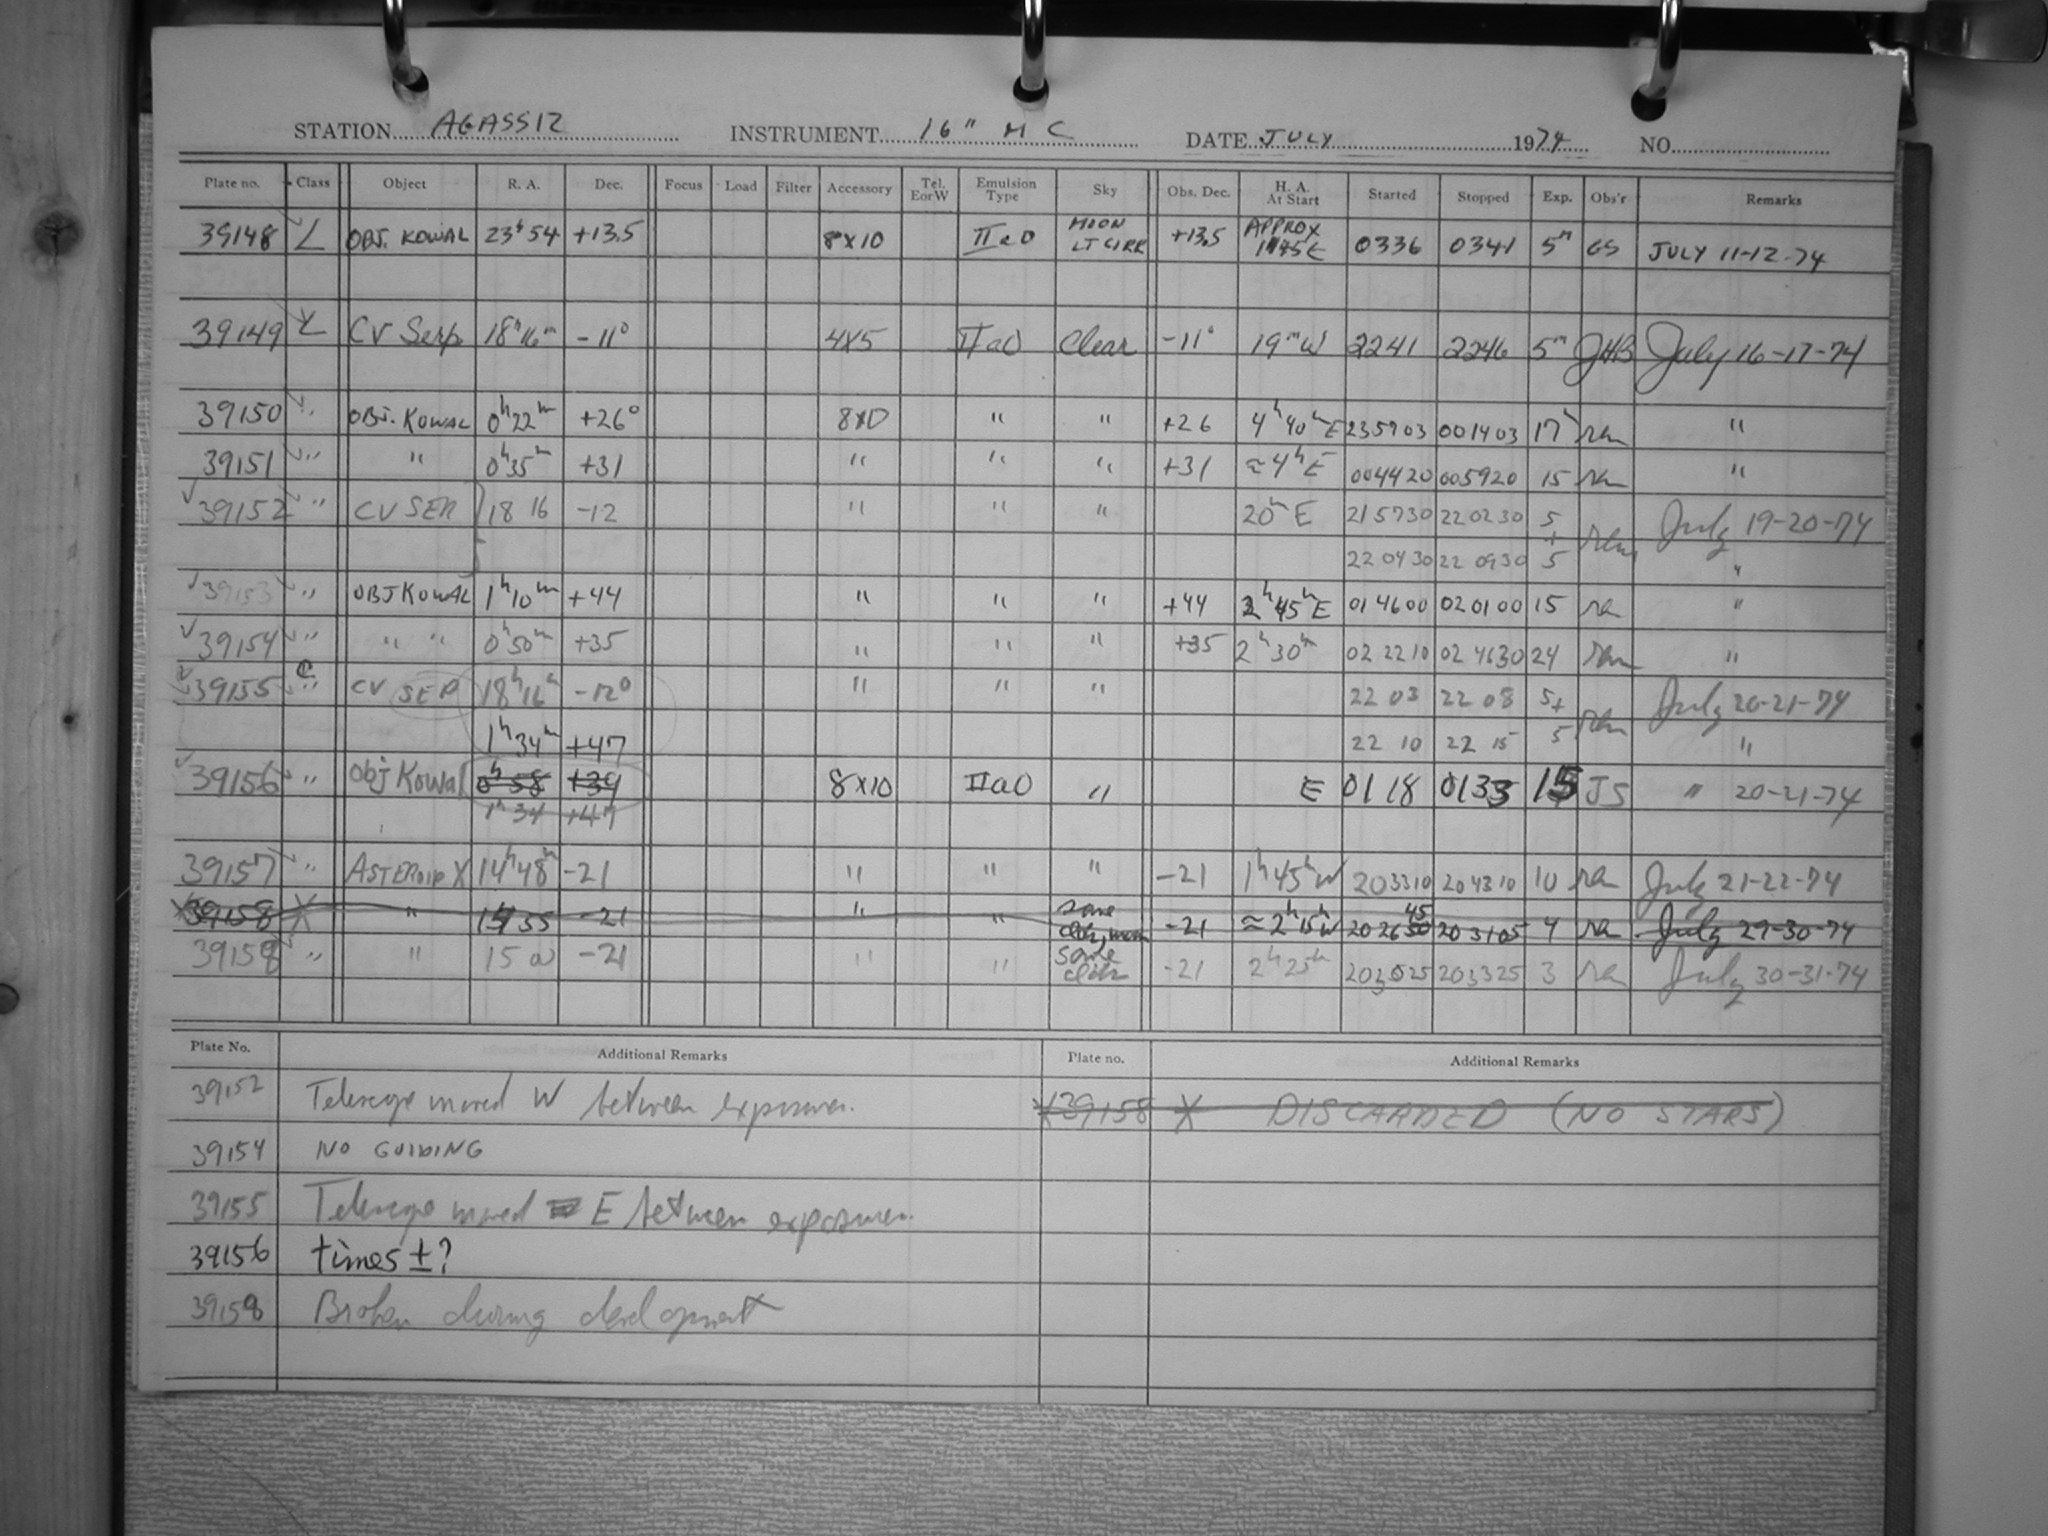 STATION AGASSIZ INSTRUMENT 16" MC DATE JULY 1974 NO.
Plate no. Class Object R. A. Dec. Focus Load Filter Accessory Tel. EorW Emulsion Type Sky Obs. Dec. H. A. At Start Started Stopped Exp. Obs'r Remarks
39148 L OBJ. KOWAL 23h 54 +13.5 8x10 IIaO MOON LT CIRR +13.5 APPROX E 0336 0341 5m GS JULY 11-12-74
39149 L CV Serp 18h16m -11° 4x5 IIaO Clear -11° 19m W 2241 2246 5m JHB July 16-17-74
39150 " OBJ. KOWAL 0h22m +26° 8x10 " " +26 4h40m E 235703 001403 17 "
39151 " " 0h35m +31 " " " +31 ≈4h E 004420 005920 15 "
39152 " CV SER 18 16 -12 " " " 20m E 215730 220230 5 July 19-20-74
220430 220930 +5 "
39153 " OBJ KOWAL 1h10m +44 " " " +44 2h45m E 014600 020100 15 "
39154 " " " 0h50m +35 " " " +35 2h30m 022210 024630 24 "
39155 C " CV SER 18h16m -12° " " " 22 03 22 08 5+ July 20-21-74
1h34m +47 22 10 22 15 5 "
39156 " Obj Kowal 0h58 +39 8x10 IIaO " E 0118 0133 15 JS " 20-21-74
1h34 +47
39157 " ASTEROID X 14h48m -21 " " " -21 1h45m W 203310 204310 10 July 21-22-74
39158 X " 55 -21 " " some -21 ≈2h15m W 2026 45 203105 4 July 29-30-74
39158 " " 15 00 -21 " " some -21 2h25m 203025 203325 3 July 30-31-74
Plate No. Additional Remarks Plate no. Additional Remarks
39152 Telescope moved W between exposures. X39158 X DISCARDED (NO STARS)
39154 NO GUIDING
39155 Telescope moved E between exposures.
39156 times ±?
39158 Broken during development